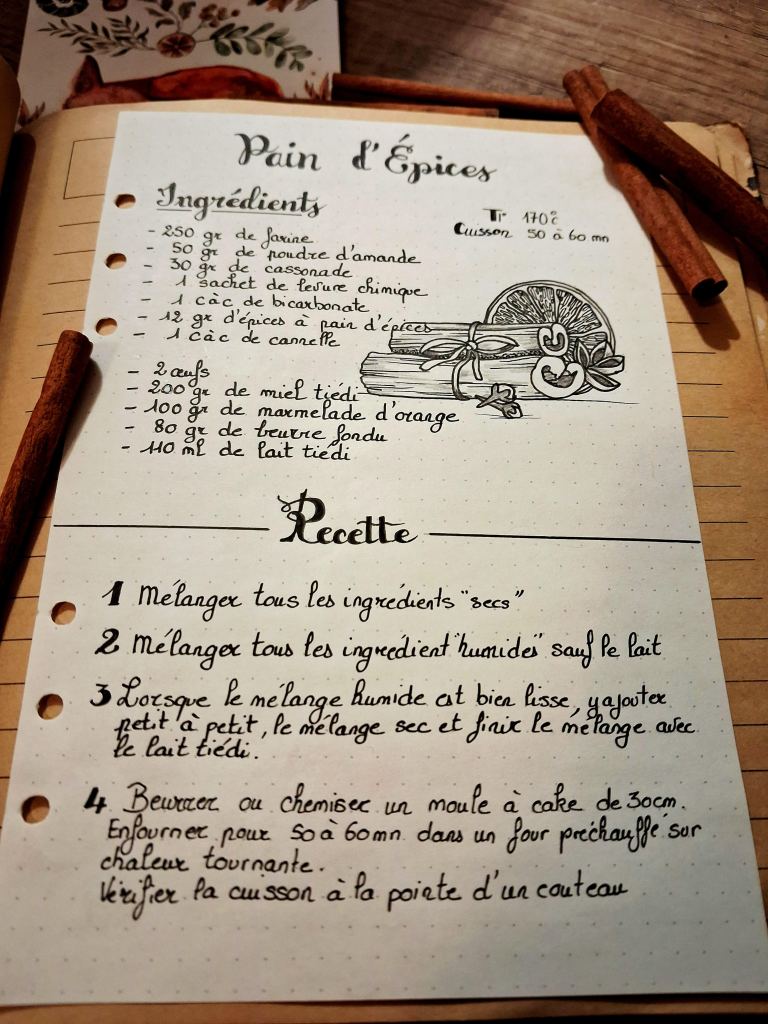 Pain d'Épices
Ingrédients
Tr 170°c
Cuisson 50 à 60 mn
- 250 gr de farine
- 50 gr de poudre d'amande
- 30 gr de cassonade
- 1 sachet de levure chimique
- 1 càc de bicarbonate
- 12 gr d'épices à pain d'épices
- 1 càc de cannelle
- 2 œufs
- 200 gr de miel tiédi
- 100 gr de marmelade d'orange
- 80 gr de beurre fondu
- 110 ml de lait tiédi
Recette
1 Mélanger tous les ingrédients "secs"
2 Mélanger tous les ingrédient "humides" sauf le lait
3 Lorsque le mélange humide est bien lisse, y ajouter
petit à petit, le mélange sec et finir le mélange avec
le lait tiédi.
4 Beurrer ou chemiser un moule à cake de 30cm.
Enfourner pour 50 à 60mn dans un four préchauffé sur
chaleur tournante.
Vérifier la cuisson à la pointe d'un couteau